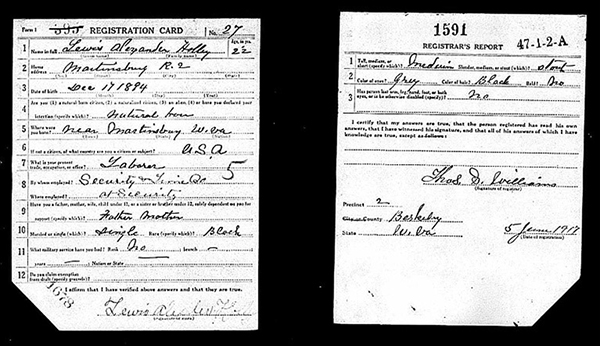 Form 1 595 REGISTRATION CARD No. 27
1 Name in full Lewis Alexander Holly Age, in yrs. 22
2 Home address Martinsburg R. 2
3 Date of birth Dec 17 1894
4 Are you (1) a natural born citizen, (2) a naturalized citizen, (3) an alien, (4) or have you declared your
intention (specify which)? Natural born
5 Where were you born? near Martinsburg W. Va
6 If not a citizen, of what country are you a citizen or subject? U.S.A
7 What is your present trade, occupation, or office? Laborer 5
8 By whom employed? Security
Where employed? at Security
9 Have you a father, mother, wife, child under 12, or a sister or brother under 12, solely dependent on you for
support (specify which)? Father Mother
10 Married or single (which)? Single Race (specify which)? Black
11 What military service have you had? Rank No Branch —
years — Nation or State —
12 Do you claim exemption from draft (specify grounds)?
I affirm that I have verified above answers and that they are true.
1678
Lewis
1591
REGISTRAR'S REPORT 47-1-2-A
1 Tall, medium, or short (specify which)? Medium Slender, medium, or stout (which)? Stout
2 Color of eyes? Grey Color of hair? Black Bald? No
3 Has person lost arm, leg, hand, foot, or both eyes, or is he otherwise disabled (specify)? No
I certify that my answers are true, that the person registered has read his own
answers, that I have witnessed his signature, and that all of his answers of which I have
knowledge are true, except as follows:
Thos. D. Williams
(Signature of registrar)
Precinct 2
City or County Berkeley
State W. Va 5 June 1917
(Date of registration)